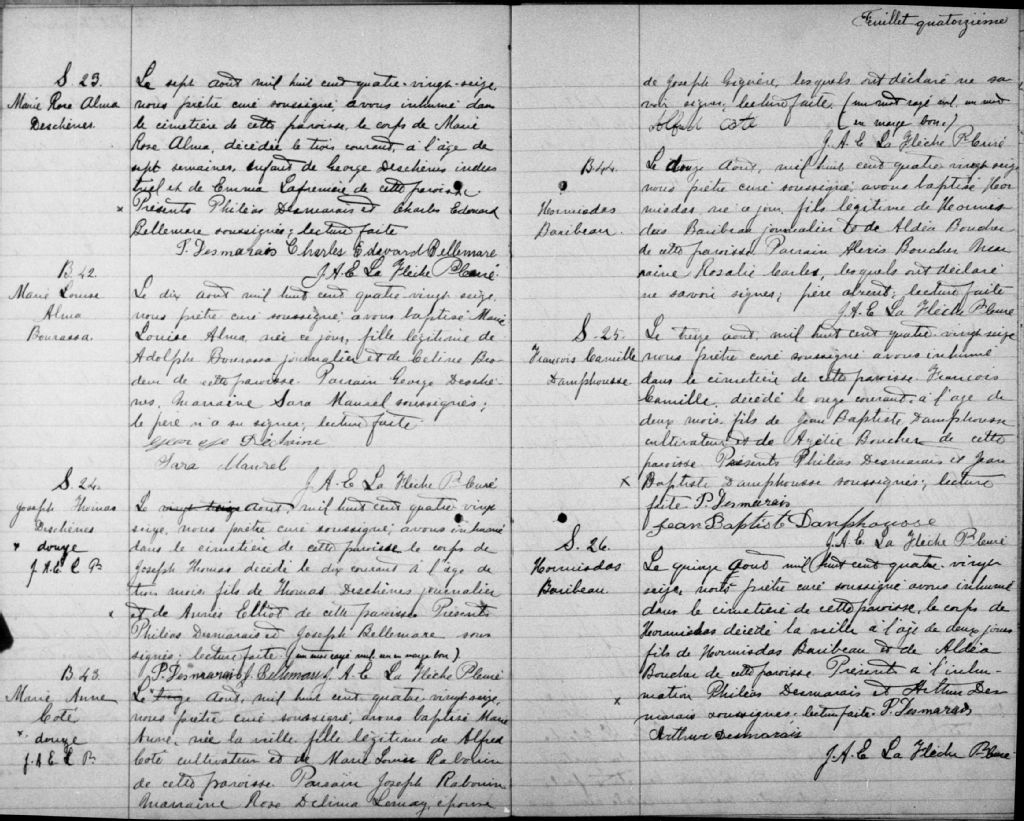 S. 23.
Marie Rose Alma
Deschênes.
Le sept août mil huit cent quatre-vingt-seize,
nous prêtre curé soussigné, avons inhumé dans
le cimetière de cette paroisse, le corps de Marie
Rose Alma, décédée le trois courant, à l'âge de
sept semaines, enfant de George Deschênes indus
triel et de Emma Lafrenière de cette paroisse
Présents Philéas Desmarais et Charles Edouard
Bellemare soussignés; lecture faite
P. Desmarais Charles Edouard Bellemare
J. A. E. La Flèche Ptre Curé
B. 42.
Marie Louise
Alma
Bourassa.
Le dix août mil huit cent quatre-vingt seize,
nous prêtre curé soussigné, avons baptisé Marie
Louise Alma, née ce jour, fille légitime de
Adolphe Bourassa journalier et de Celine
de cette paroisse. Parrain George Desche
nes, marraine Sara Maurel soussignés;
le père n'a su signer, lecture faite
george Dechène
Sara Maurel
J. A. E. La Flèche P. Curé
S. 24.
Joseph Thomas
Deschênes
x douze
J. A. E. L. P.
Le vingt août, mil huit cent quatre vingt
seize, nous prêtre curé soussigné, avons inhumé
dans le cimetière de cette paroisse le corps de
Joseph Thomas décédé le dix courant à l'âge de
trois mois fils de Thomas Deschênes journalier
et de Année Elliot de cette paroisse. Présents
Philéas Desmarais et Joseph Bellemare sous
signés; lecture faite (un mot rayé nul, un en marge bon)
P. Desmarais J. Bellemare J. A. E. La Flèche P. Curé
B. 43.
Marie Anne
Coté
x. douze
J. A. E. L. P.
Le août, mil huit cent quatre vingt seize,
nous prêtre curé soussigné, avons baptisé Marie
Anne, née la veille, fille légitime de Alfred
Coté cultivateur et de Marie Louise Rabouin
de cette paroisse. Parrain Joseph Rabouin
Marraine Rose Delima Lemay, épouse
Feuillet quatorzième
de Joseph Giguère, lesquels ont déclaré ne sa
voir signer, lecture faite. (un mot rayé nul, un mot
en marge bon.)
Alfred Coté
J. A. E. La Flèche P. Curé
B. 44.
Hormisdas
Baribeau.
Le douze août, mil huit cent quatre vingt seize
nous prêtre curé soussigné, avons baptisé Hor
misdas né ce jour, fils légitime de Hormis
das Baribeau journalier et de Aldéa Boucher
de cette paroisse. Parrain Alexis Boucher Mar
raine Rosalie Carles, lesquels ont déclaré
ne savoir signer; père absent; lecture faite
J. A. E. La Flèche P. Curé
S. 25.
François Camille
Damphousse
Le treize août, mil huit cent quatre vingt seize
nous prêtre curé soussigné avons inhumé
dans le cimetière de cette paroisse François
Camille, décédé le onze courant, à l'age de
deux mois fils de Jean Baptiste Damphousse
cultivateur et de Azélie Boucher de cette
paroisse. Présents Philéas Desmarais et Jean
Baptiste Damphousse soussignés; lecture
faite P. Desmarais
Jean Baptiste Danphousse
J. A. E. La Flèche P. Curé
S. 26.
Hormisdas
Baribeau.
Le quinze août mil huit cent quatre-vingt
seize, nous prêtre curé soussigné avons inhumé
dans le cimetière de cette paroisse, le corps de
Hormisdas décédé la veille à l'âge de deux jours
fils de Hormisdas Baribeau et de Aldéa
Boucher de cette paroisse. Présents à l'inhu
mation Philéas Desmarais et Arthur Des
marais soussignés. lecture faite. P. Desmarais
Arthur Desmarais
J. A. E. La Flèche P. Curé